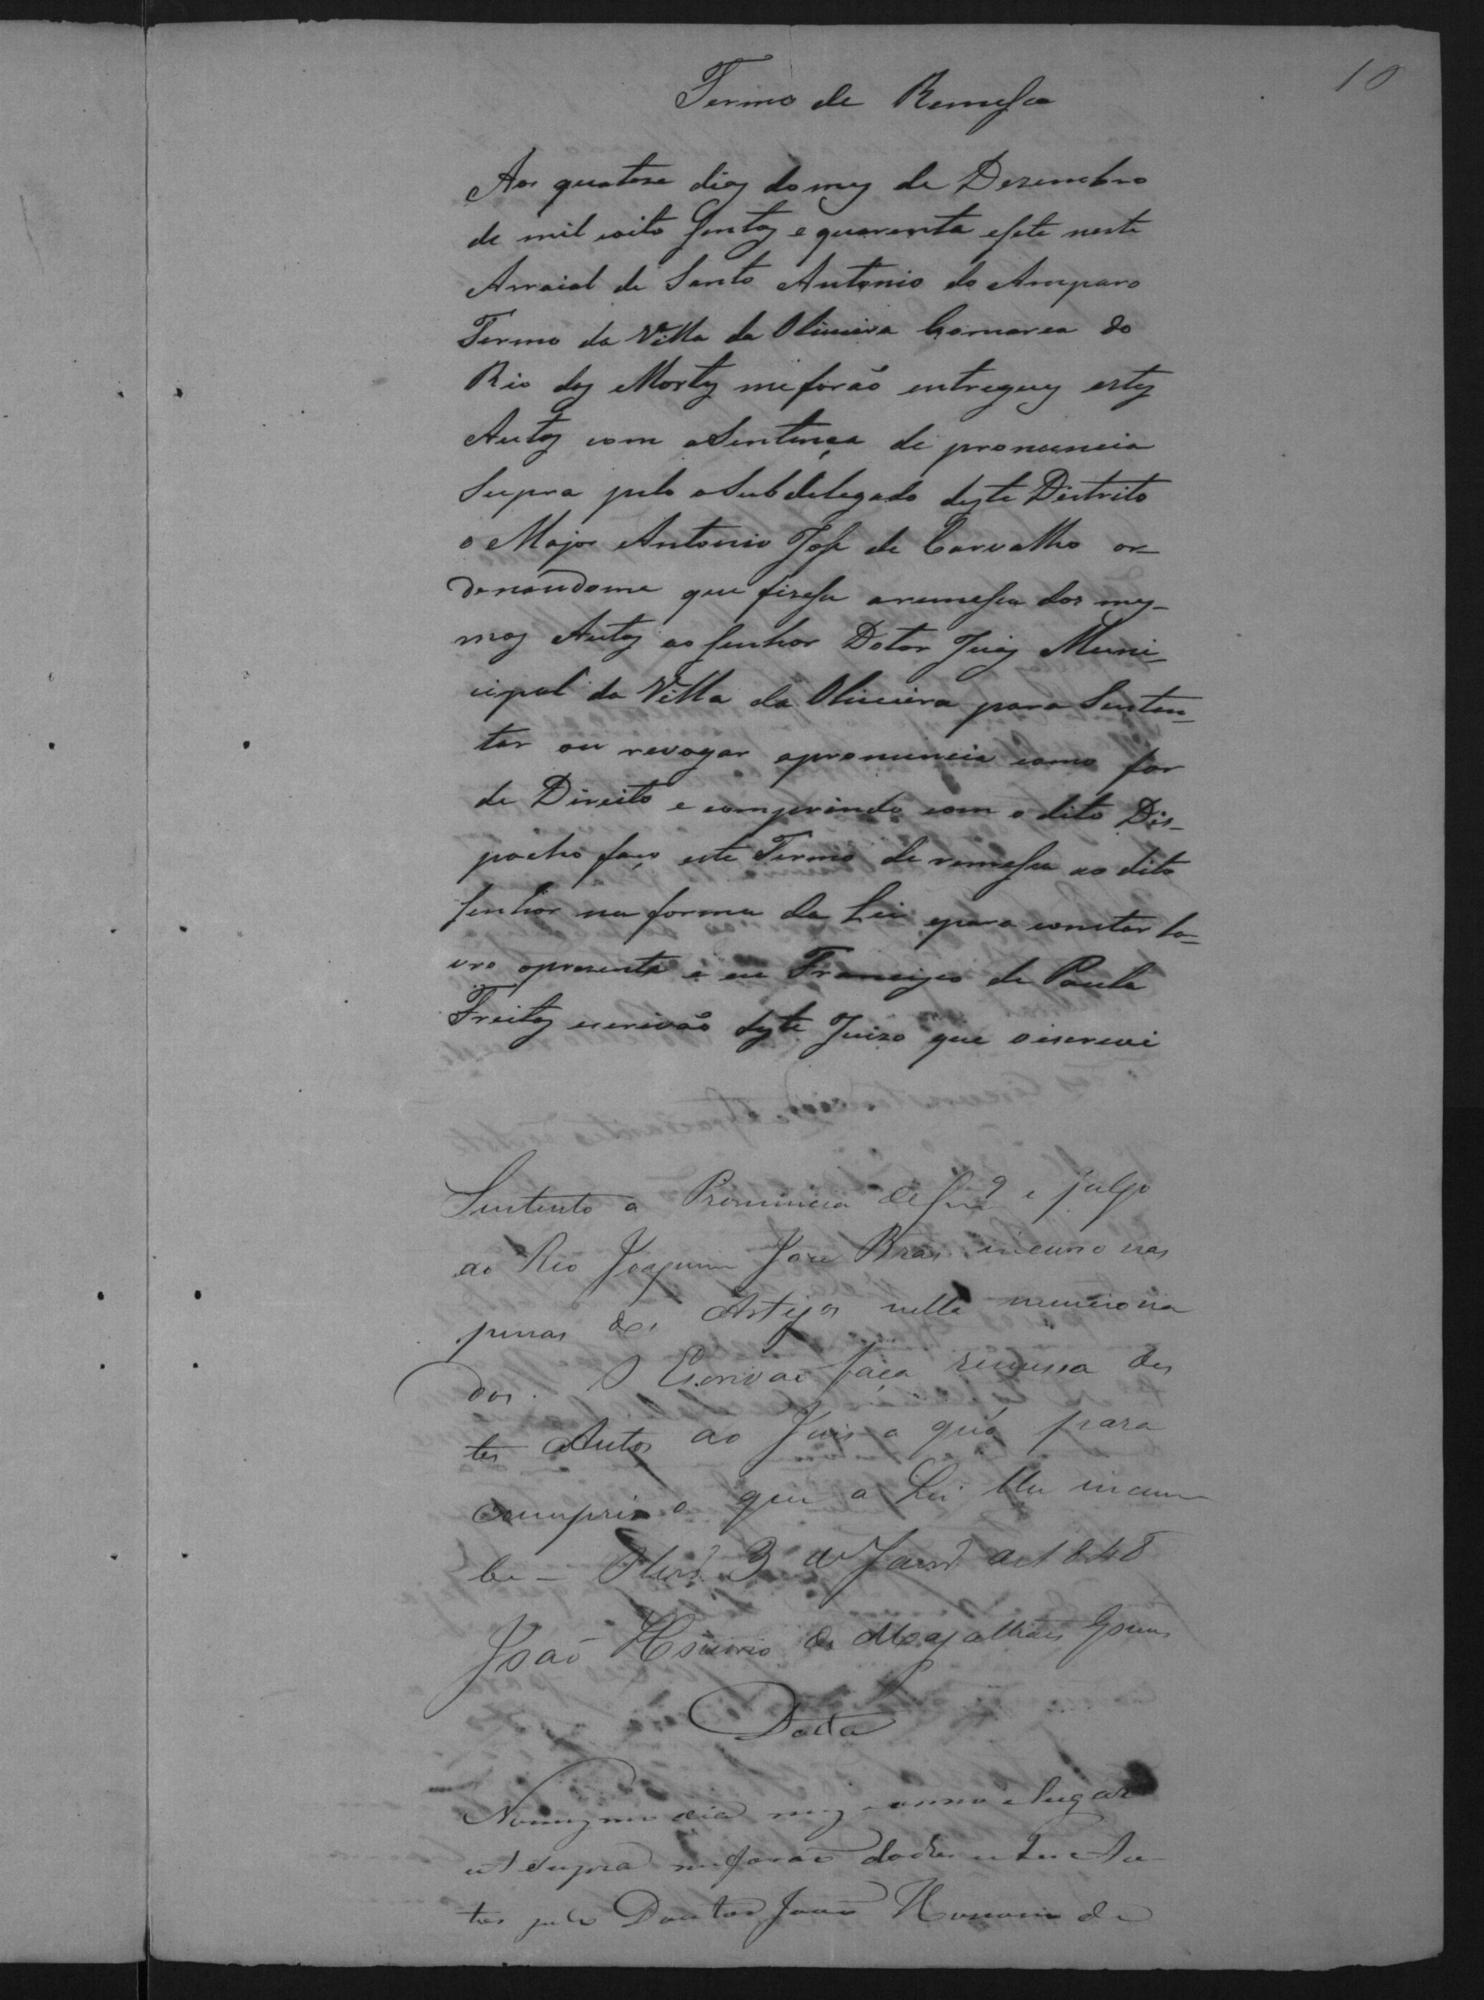 10
Termo de Remessa
Aos quatorze dias do mes de Dezembro
de mil oito sentos e quarenta esete neste
Arraial de Santo Antonio do Amparo
Termo da Villa da Oliveira Comarca do
Rio das Mortes me forão entregues estes
Autos com aSentença de pronuncia
Supra pelo oSubdelegado deste Destrito
o Major Antonio José de Carvalho or-
denandome que fizesse aremessa dos mes-
mos Autos ao Senhor Dotor Juis Muni-
cipal da Villa da Oliveira para Susten-
tar ou revogar apronuncia como for
de Direito e comprindo com o dito Des-
pacho faço este Termo de remessa ao dito
Senhor na forma da Lei epara constar la-
vro opresente e eu Francisco de Paula
Freitas escrivão deste Juizo que oiscrevi
Sustento a Pronuncia de e julgo
ao Reo Joaquim Jose Bras incurso nas
penas dos Artigos nella menciona
dos. O Escrivão faça remessa des
tes Autos ao Juis a quó para
cumprir o que a Lei lhe incum
be - Olivra 3 de Janro de 1848
João de Magalhães Gomes
Data
Nomesmo dia mes eanno e lugar
ut supra me forão dados estes Au-
tos pelo Doutor João de